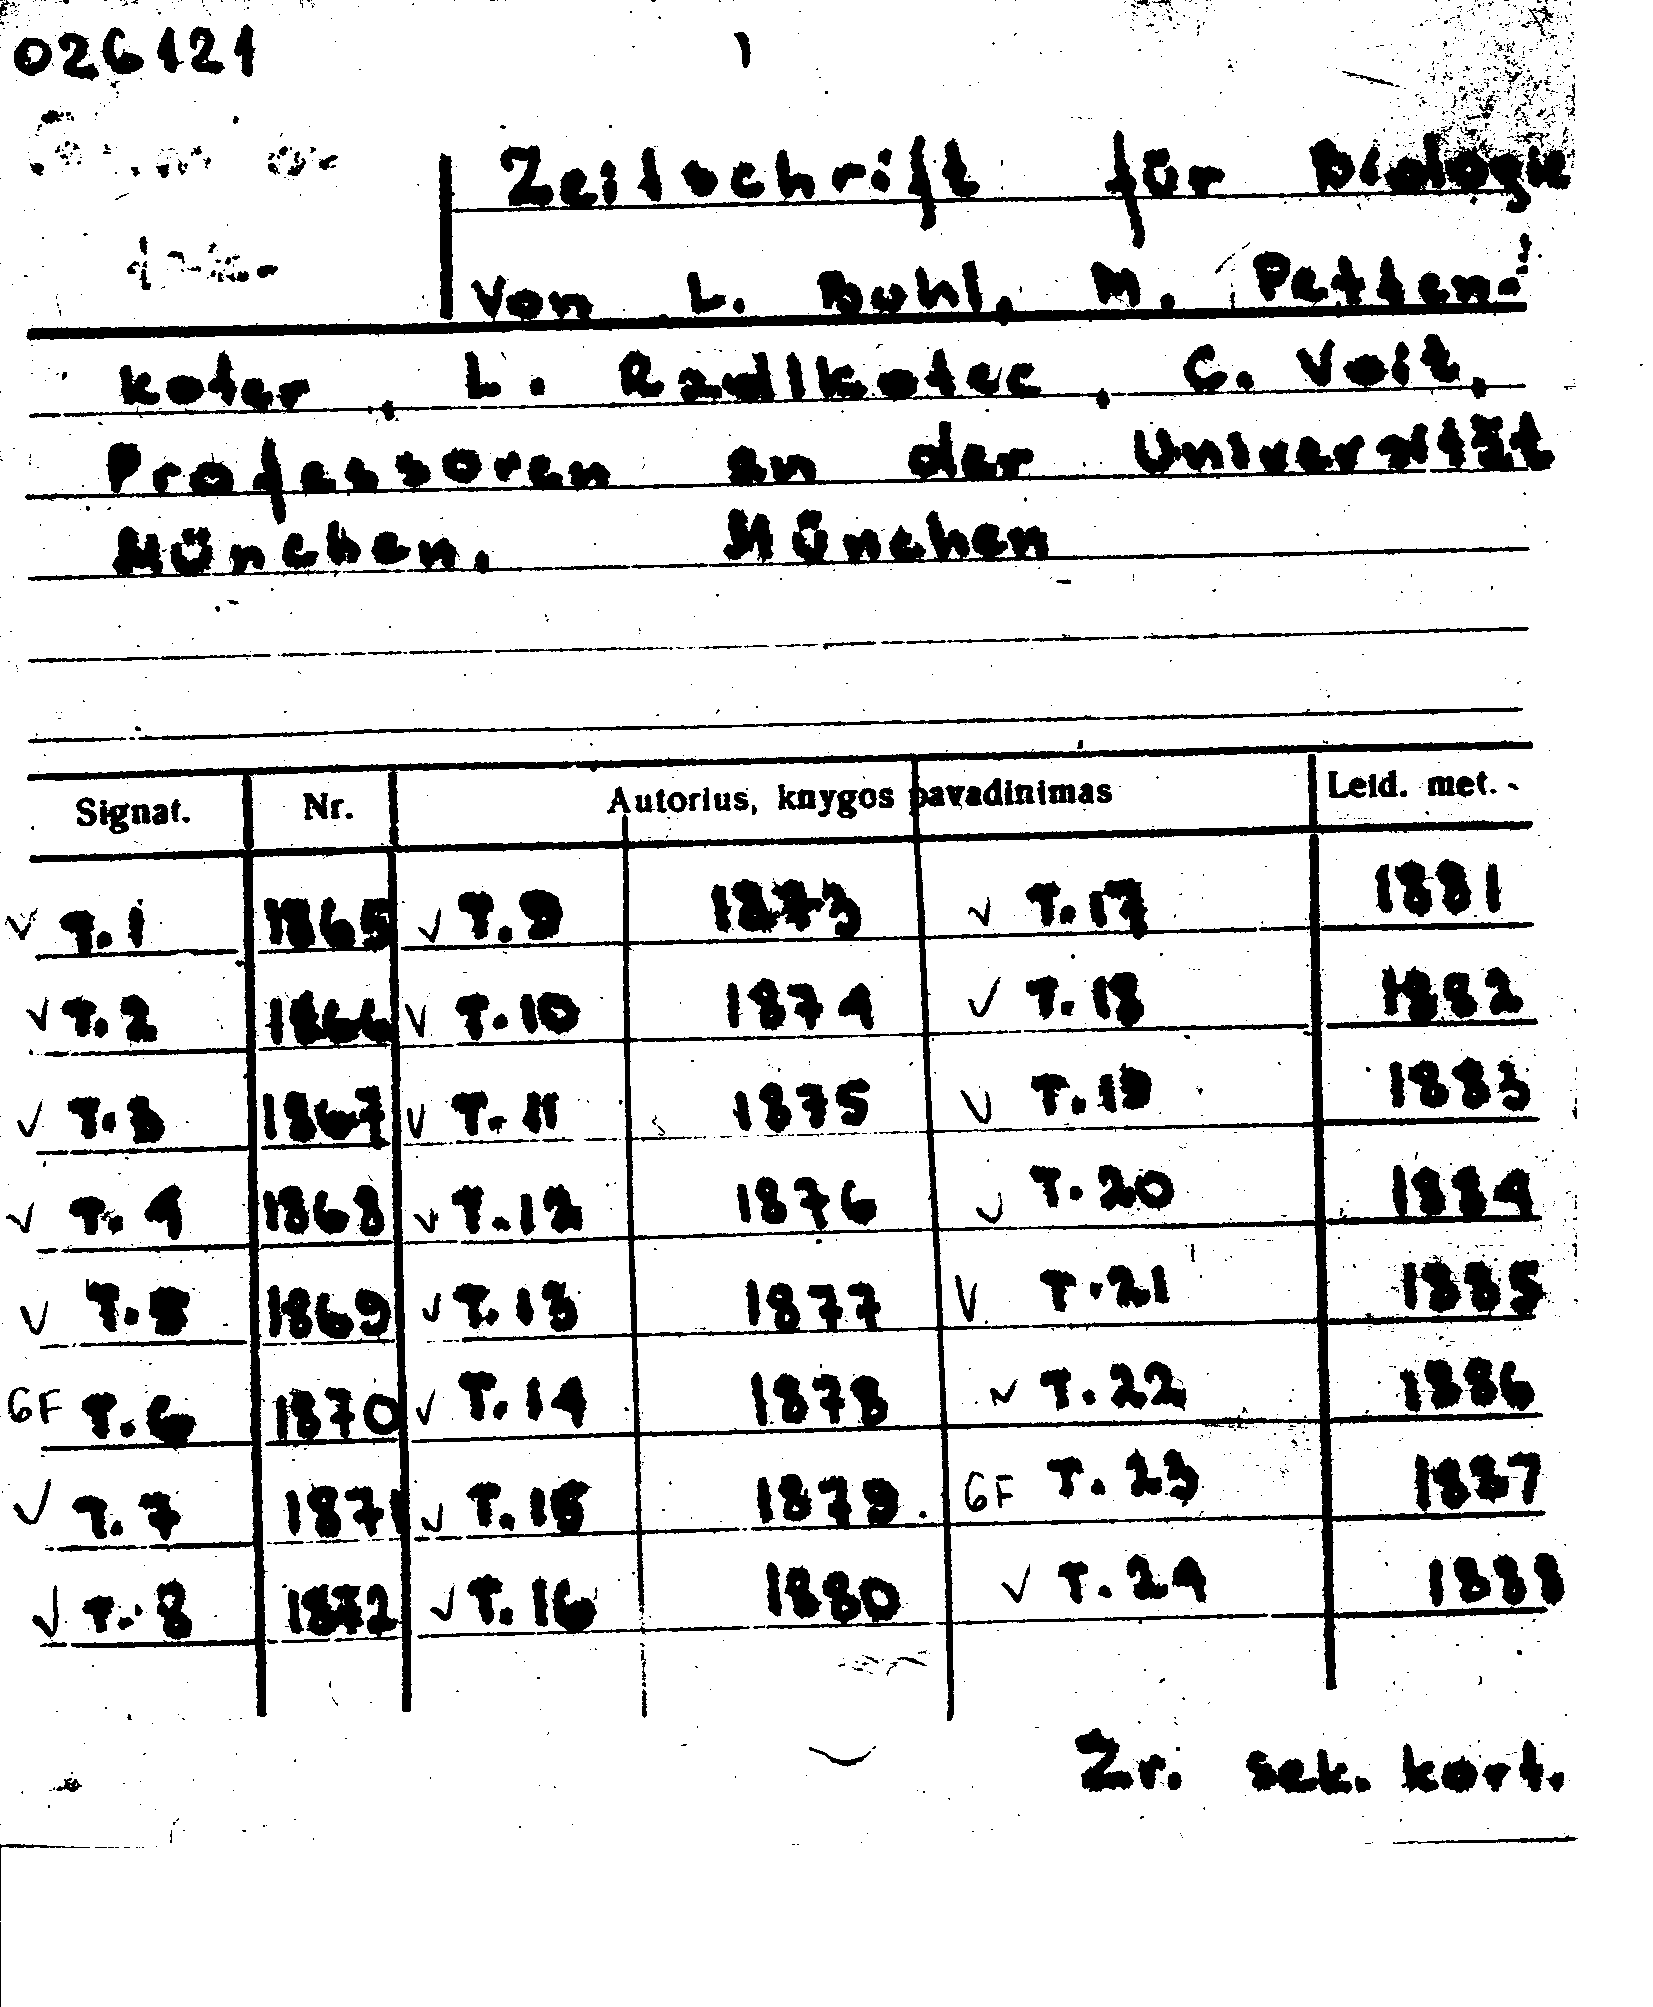 026121
Zeitschrift für Biologie
Von L. Buhl, M. Petten-
kofer, L. Radlkofec, C. Voit,
Professoren an der Universität
München. München
Signat. Nr. Autorius, knygos pavadinimas Leid. met.
V T. 1 1865 V T. 9 1873 V T. 17 1881
V T. 2 1866 V T. 10 1874 V T. 18 1882
V T. 3 1867 V T. 11 1875 V T. 19 1883
V T. 4 1868 V T. 12 1876 V T. 20 1884
V T. 5 1869 V T. 13 1877 V T. 21 1885
GF T. 6 1870 V T. 14 1878 V T. 22 1886
V T. 7 1871 V T. 15 1879. GF T. 23 1887
V T. 8 1872 V T. 16 1880 V T. 24 1888
Žr. sek. kort.